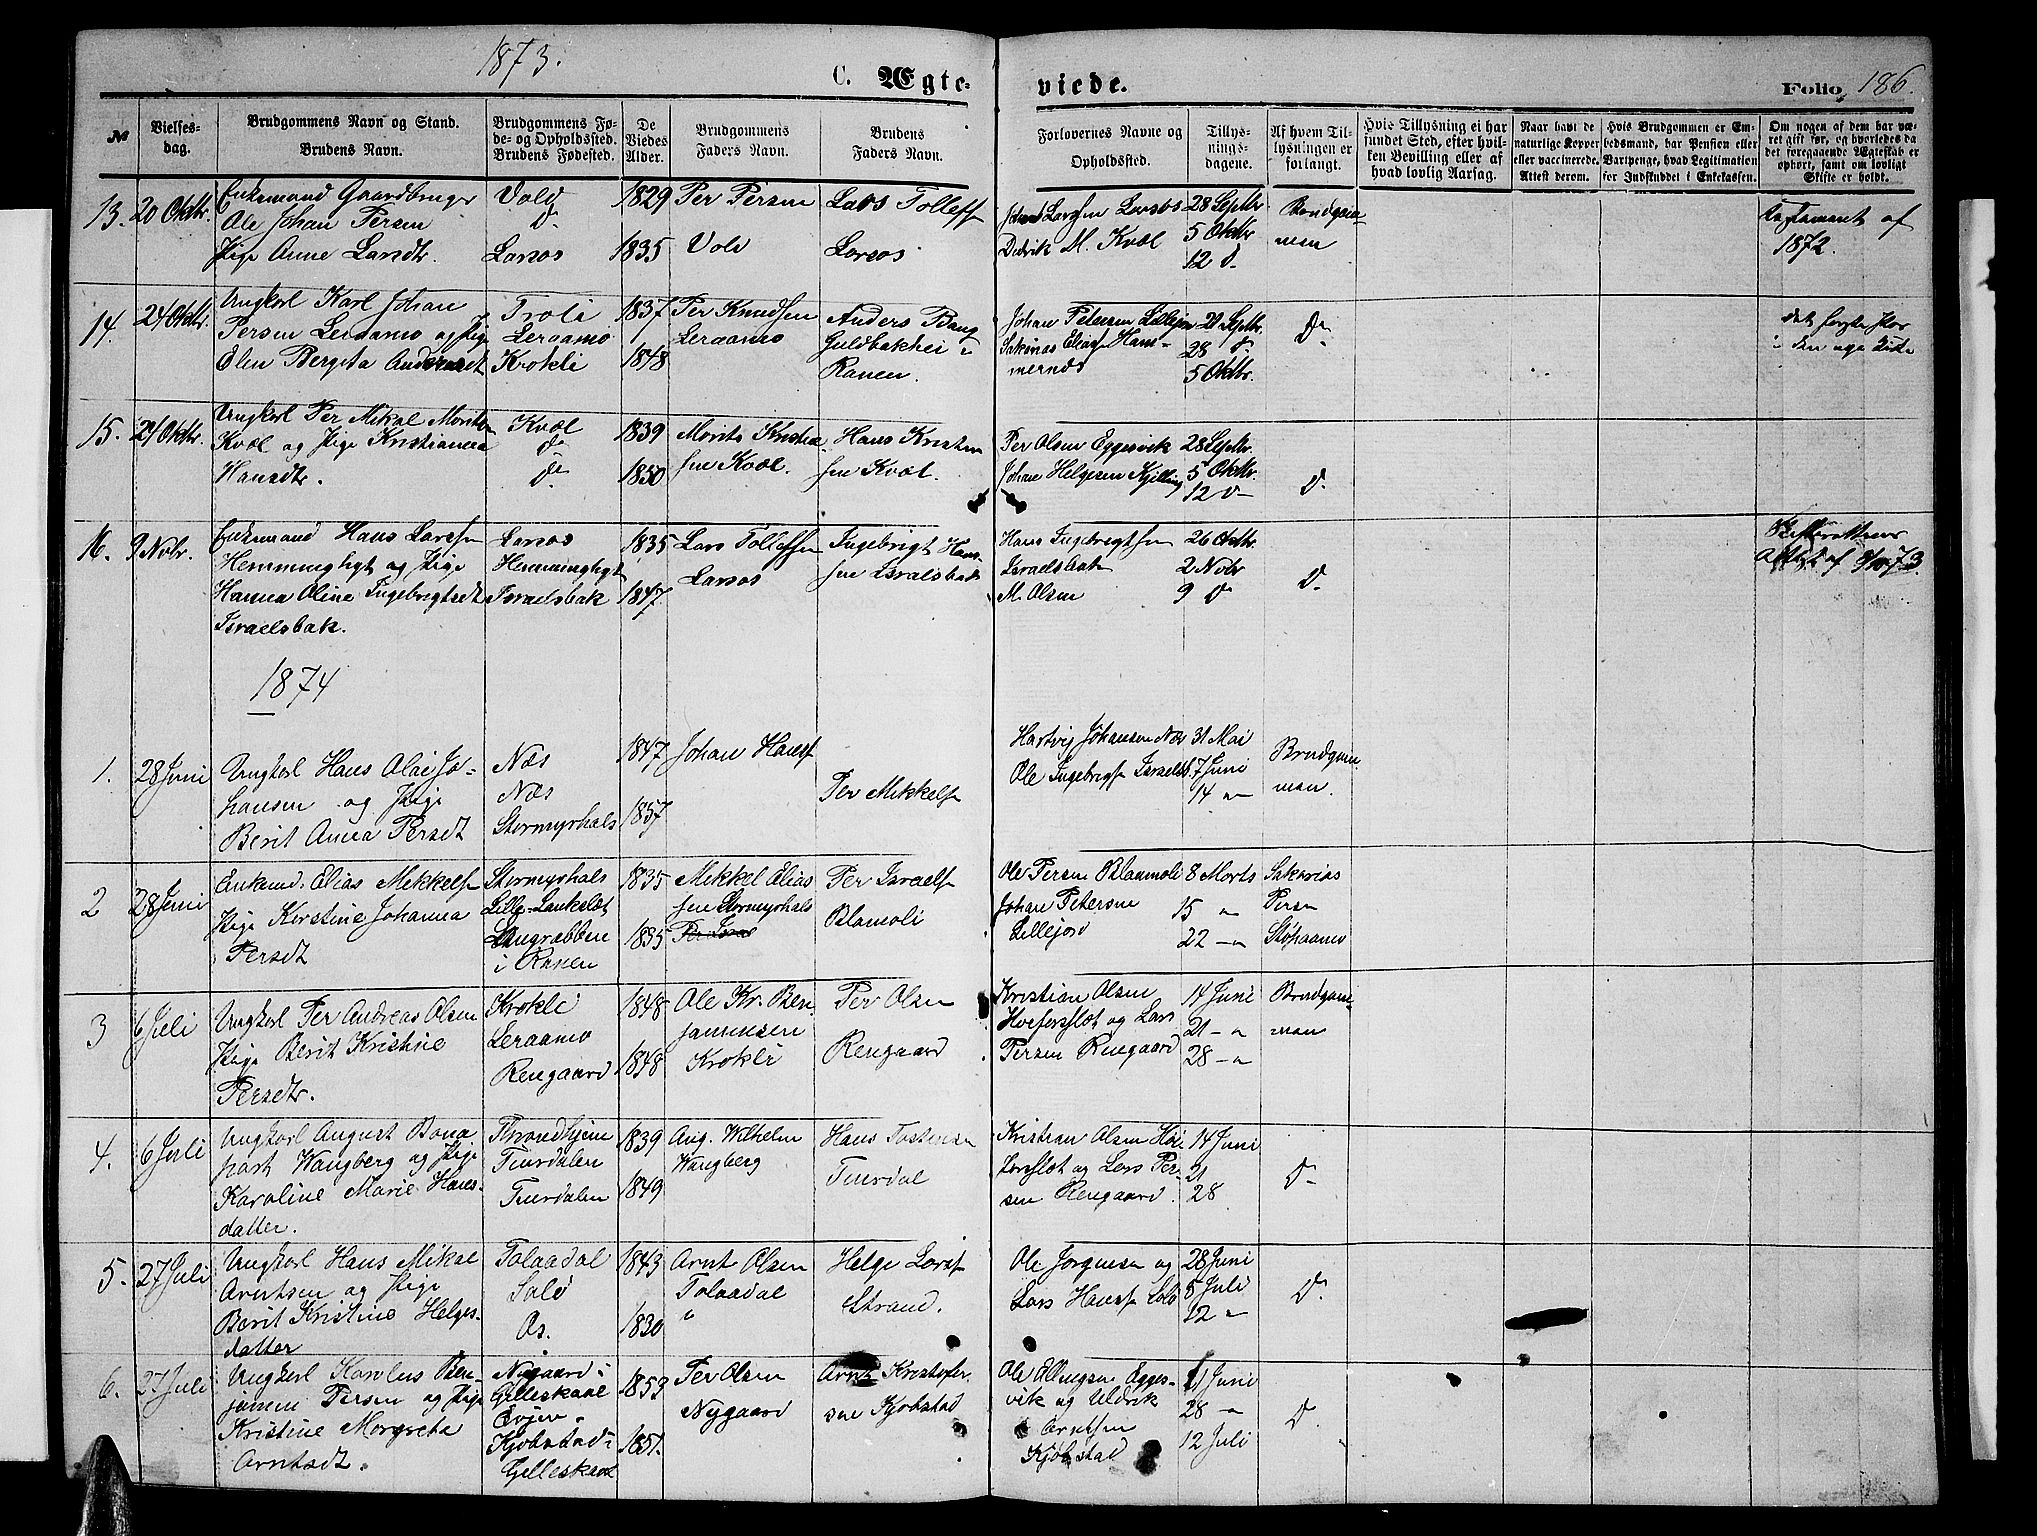 1873.
C. Ægteviede.
Folio 186.
№
Vielsesdag.
Brudgommens Navn og Stand.
Brudens Navn.
Brudgommens Føde- og Opholdssted.
Brudens Fødested.
De Viedes Alder.
Brudgommens Faders Navn.
Brudens Faders Navn.
Forlovernes Navne og Opholdssted.
Tillysningsdagene.
Af hvem Tillysningen er forlangt.
Hvis Tillysning ei har fundet Sted, efter hvilken Bevilling eller af hvad lovlig Aarsag.
Naar havt de naturlige Kopper eller vaccinerede. Attest derom.
Hvis Brudgommen er Embedsmand, har Pension eller Vartpenge, hvad Legitimation for Indskuddet i Enkekassen.
Om nogen af dem har været gift før, og hvorledes da det foregaaende Ægteskab er ophørt, samt om lovligt Skifte er holdt.
13. 20 Oktbr.
Enkemand Gaardbruger
Ole Johan Persen
Pige Anne Larsdtr.
Vold
do
Larsos
1829
1835
Per Persen
Vold
Lars Tollefs
Larsos
Larssen Larsos
Didrik M. Kvæl
28 Septbr
5 Oktbr
12 do
Brudgommen
Testament af
1872.
14. 24 Oktbr.
Ungkarl Karl Johan
Persen Leiraamo og Pige
Elen Bergita Andersdt
Troli
Leraamo
Krokli
1837
1848
Per Knudsen
Leraamo
Anders Bang
Guldbakhei i
Ranen.
Johan Petersen Lillejor
Sakarias Elias Hammernes
21 Septbr.
28 do
5 Oktbr.
Do
15. 24 Oktbr.
Ungkarl Per Mikal Morits
Kvæl og Pige Kristianna
Hansdtr.
Kvæl
do
do
1839
1850
Morits Kristiansen Kvæl.
Hans Kristensen Kvæl.
Per Olsen Eggesvik
Johan Helgesen Kjelling
28 Septbr.
5 Oktbr.
12 do
Do
16. 9 Nobr.
Enkemand Hans Larssen
Hemminghyt og Pige
Hanna Oline Ingebrigtsdt
Israelsbak.
Larsos
Hemminghyt
Israelsbak
1835
1847.
Lars Tollefsen
Larsos
Ingebrigt Hanssen Israelsbak
Hans Ingebrigtsen
Israelsbak
M. Olsen
26 Oktbr.
2 Nobr
9 do
Do
Skifterettens
Attest af
1874
1. 28 Juni
Ungkarl Hans Olai Johansen og Pige
Berit Anna Persdt
Næs
Næs
Stormyrhals
1847
1857
Johan Hansen
Per Mikkelsen
Hartvig Johansen Næs
Ole Ingebrigts Israelsb.
31 Mai
7 Juni
14 "
Brudgommen.
2 28 Juni
Enkemd. Elias Mikkelsen
Pige Kirstine Johanna
Persdt
Stormyrhals
Lille-Lankslet
Langræbben
i Ranen
1835
1835
Mikkel Eliassen Stormyrhals
Per Israelsen
Blamoli
Ole Persen Blaamoli
Johan Petersen
Lillejord
8 Marts
15 "
22 "
Sakarias
Persen
Støvraamo
3 6 Juli
Ungkarl Per Andreas Olsen
Pige Berit Kristine
Persdtr.
Krokli
Leraamo
Rengaard
1848
1848
Ole Kr. Benjaminsen
Krokli
Per Olsen
Rengaard
Kristian Olsen
Høiforsslet og Lars
Persen Rengaard
14 Juni
21 "
28 "
Brudgommen
4. 6 Juli
Ungkarl August Bonapart Wangberg og Pige
Karoline Marie Hansdatter.
Throndhjem
Tverdalen
Tverdalen
1839
1849
Aug. Wilhelm
Wangberg
Hans Tostensen
Tverdal
Kristian Olsen Høiforsslet og Lars Persen Rengaard.
14 Juni
21
28
Do
5. 27 Juli
Ungkarl Hans Mikal
Arntsen og Pige
Berit Kristine Helgesdatter
Tolaadal
Solø
As.
1843
1830
Arnt Olsen
Tolaadal
"
Helge Larsen
Strand.
Ole Jørgensen og
Lars Hansen Solø
28 Juni
5 Juli
12 "
Do
6. 27 Juli
Ungkarl Karolus Benjamin Persen og Pige
Kristine Margreta
Arntsdt.
Nygaard i
Gilleskaal
Evjen.
Kjøbstad i
Gilleskaal
1853
1851.
Per Olsen
Nygaard
Arnt Kristofersen Kjøbstad
Ole Ellingsen Eggesvik og Uldrik
Arntsen
Kjøbstad
21 Juni
28 "
12 Juli
Do